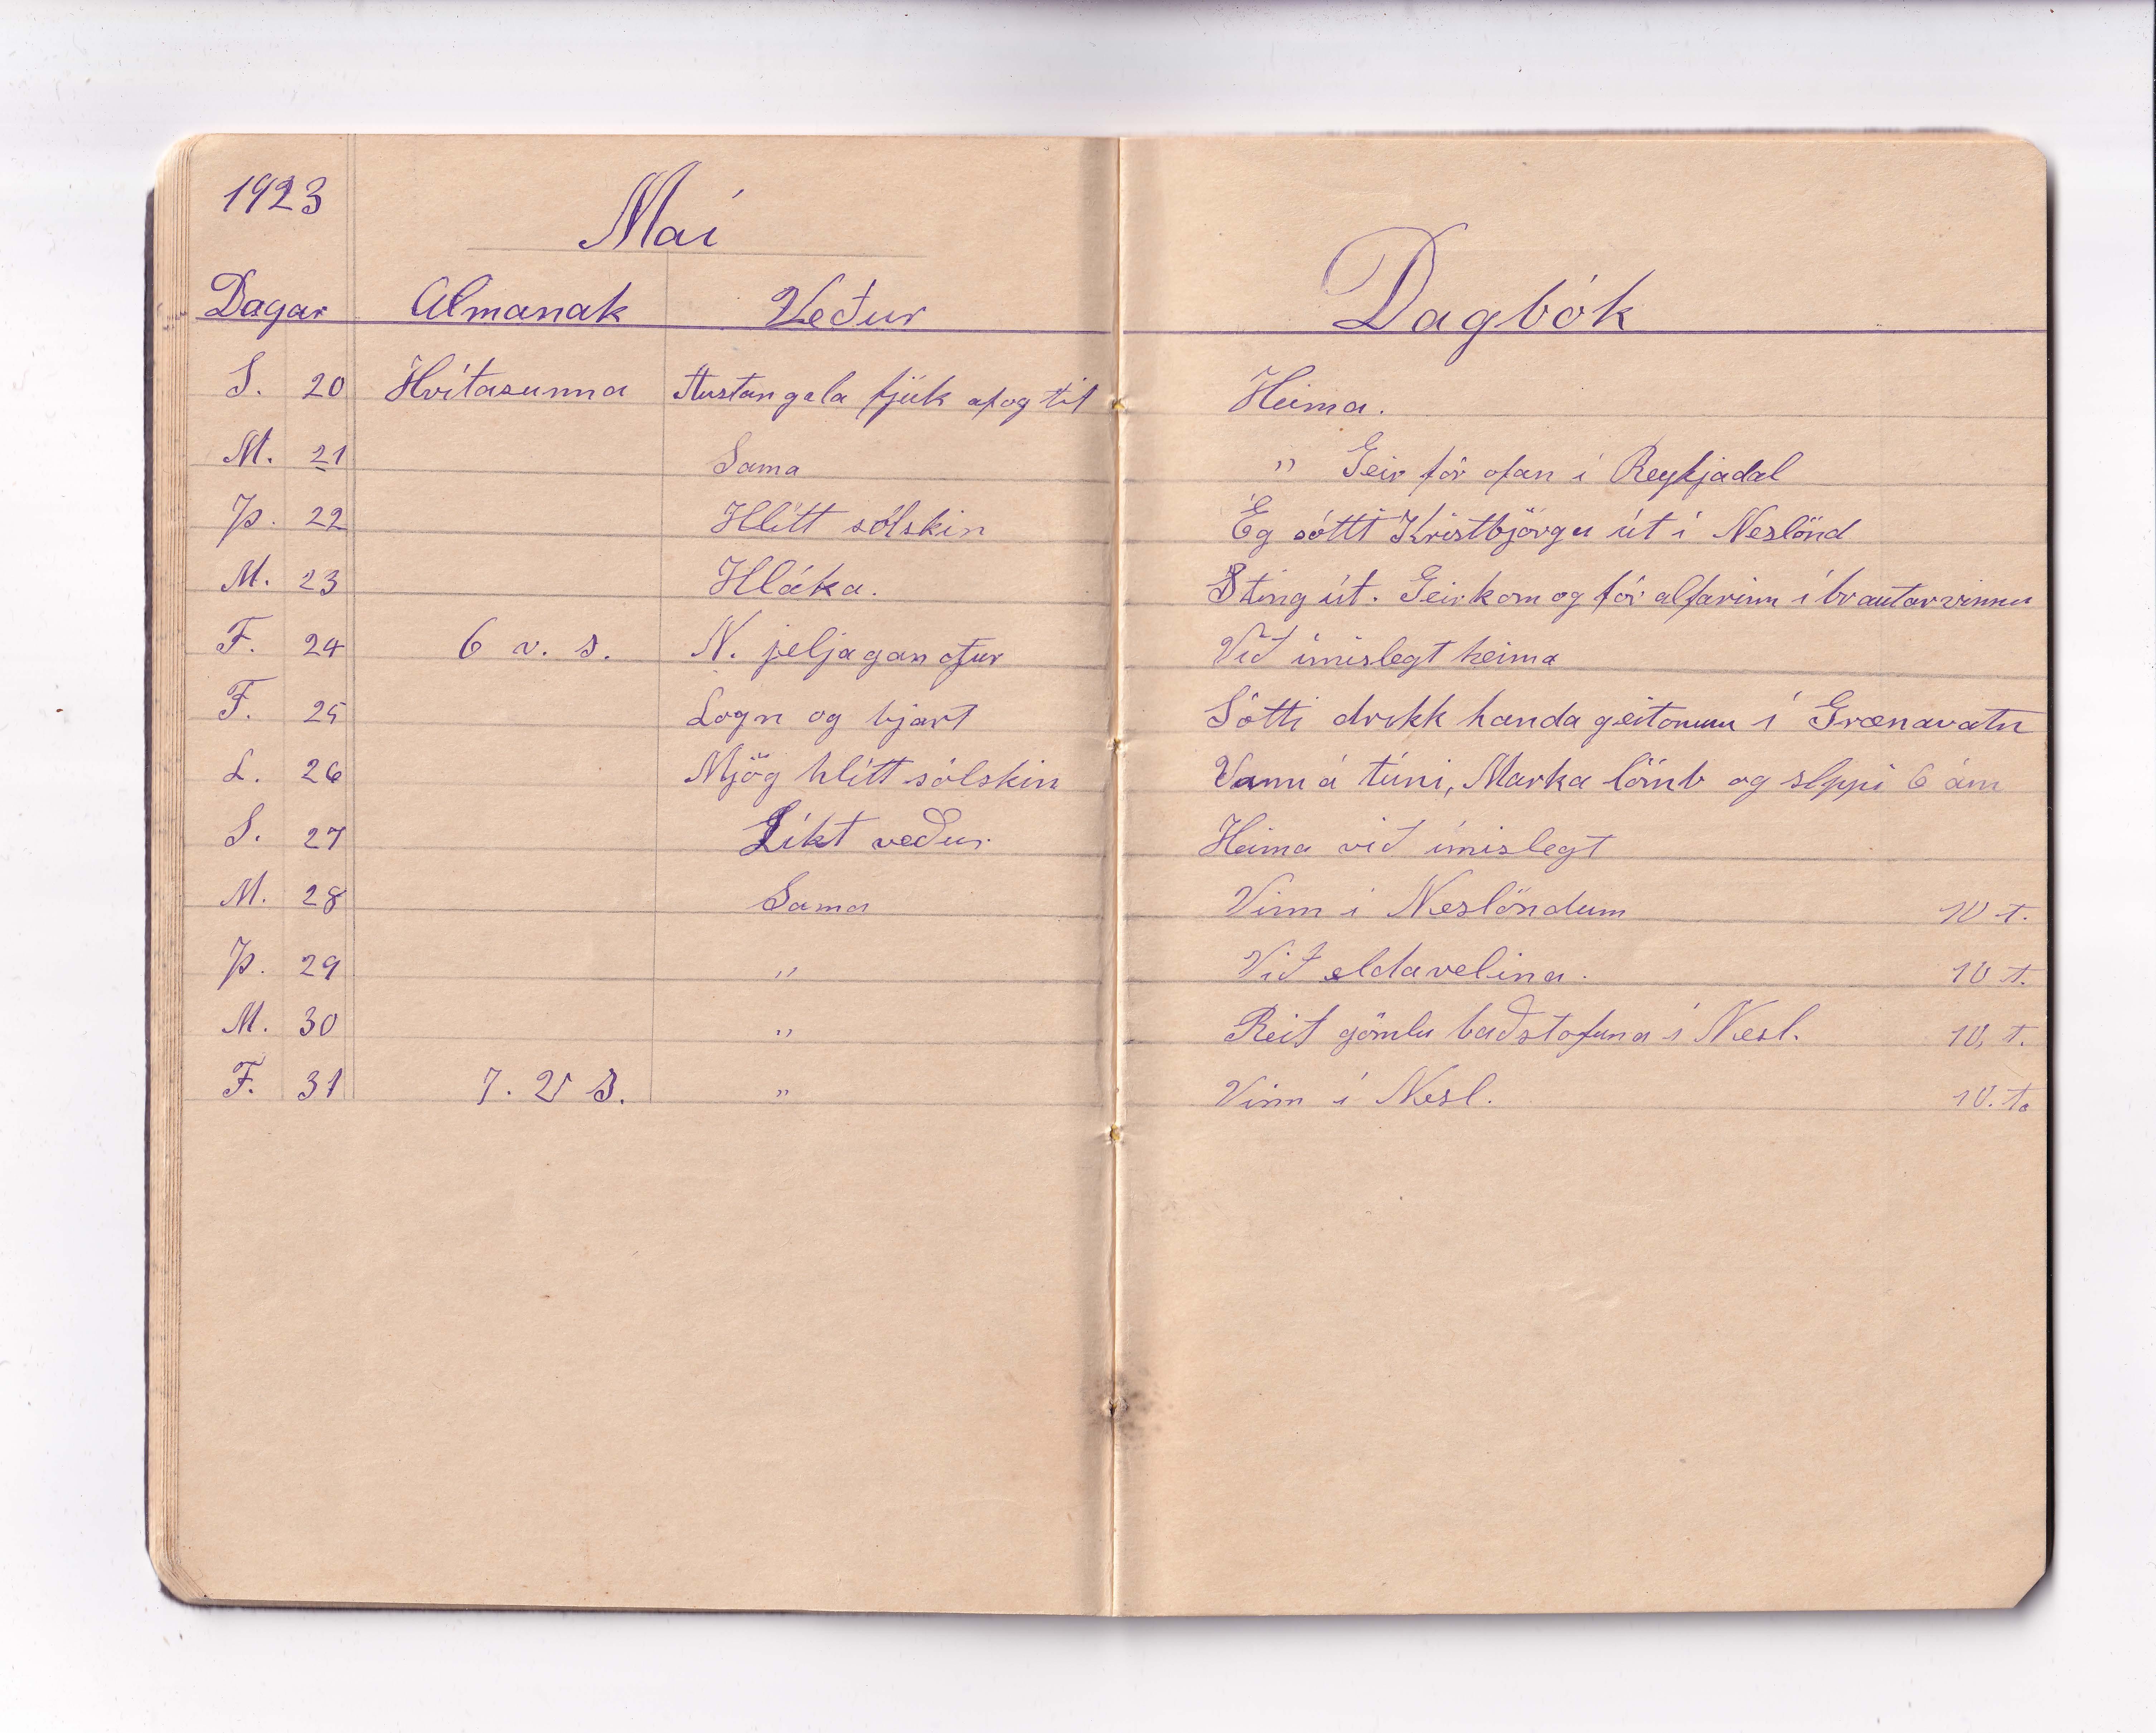 1923
Maí
Dagar Almanak Veður Dagbók
S. 20 Hvítasunna Austangola fjúk af og til Heima.
M. 21 Sama " Geir fór ofan í Reykjadal
Þ. 22 Hlítt sólskin Ég sótti Kristbjörgu út í Neslönd
M. 23 Hláka. Sting út. Geir kom og fór alfarinn í brautarvinnu
F. 24 6 v. s. N. jeljagan ofur Við ímislegt heima
F. 25 Logn og bjart Sótti drikk handa geitonum í Grænavatn
L. 26 Mjög hlítt sólskin Vann á túni, Marka lömb og sleppi 6 ám
S. 27 Líkt veður Heima við ímislegt
M. 28 Sama Vinn í Neslöndum 10 t.
Þ. 29 " Við eldavelina. 10 t.
M. 30 " Reif gömlu baðstofuna í Nesl. 10, t.
F. 31 7. V S. " Vinn í Nesl. 10. t.